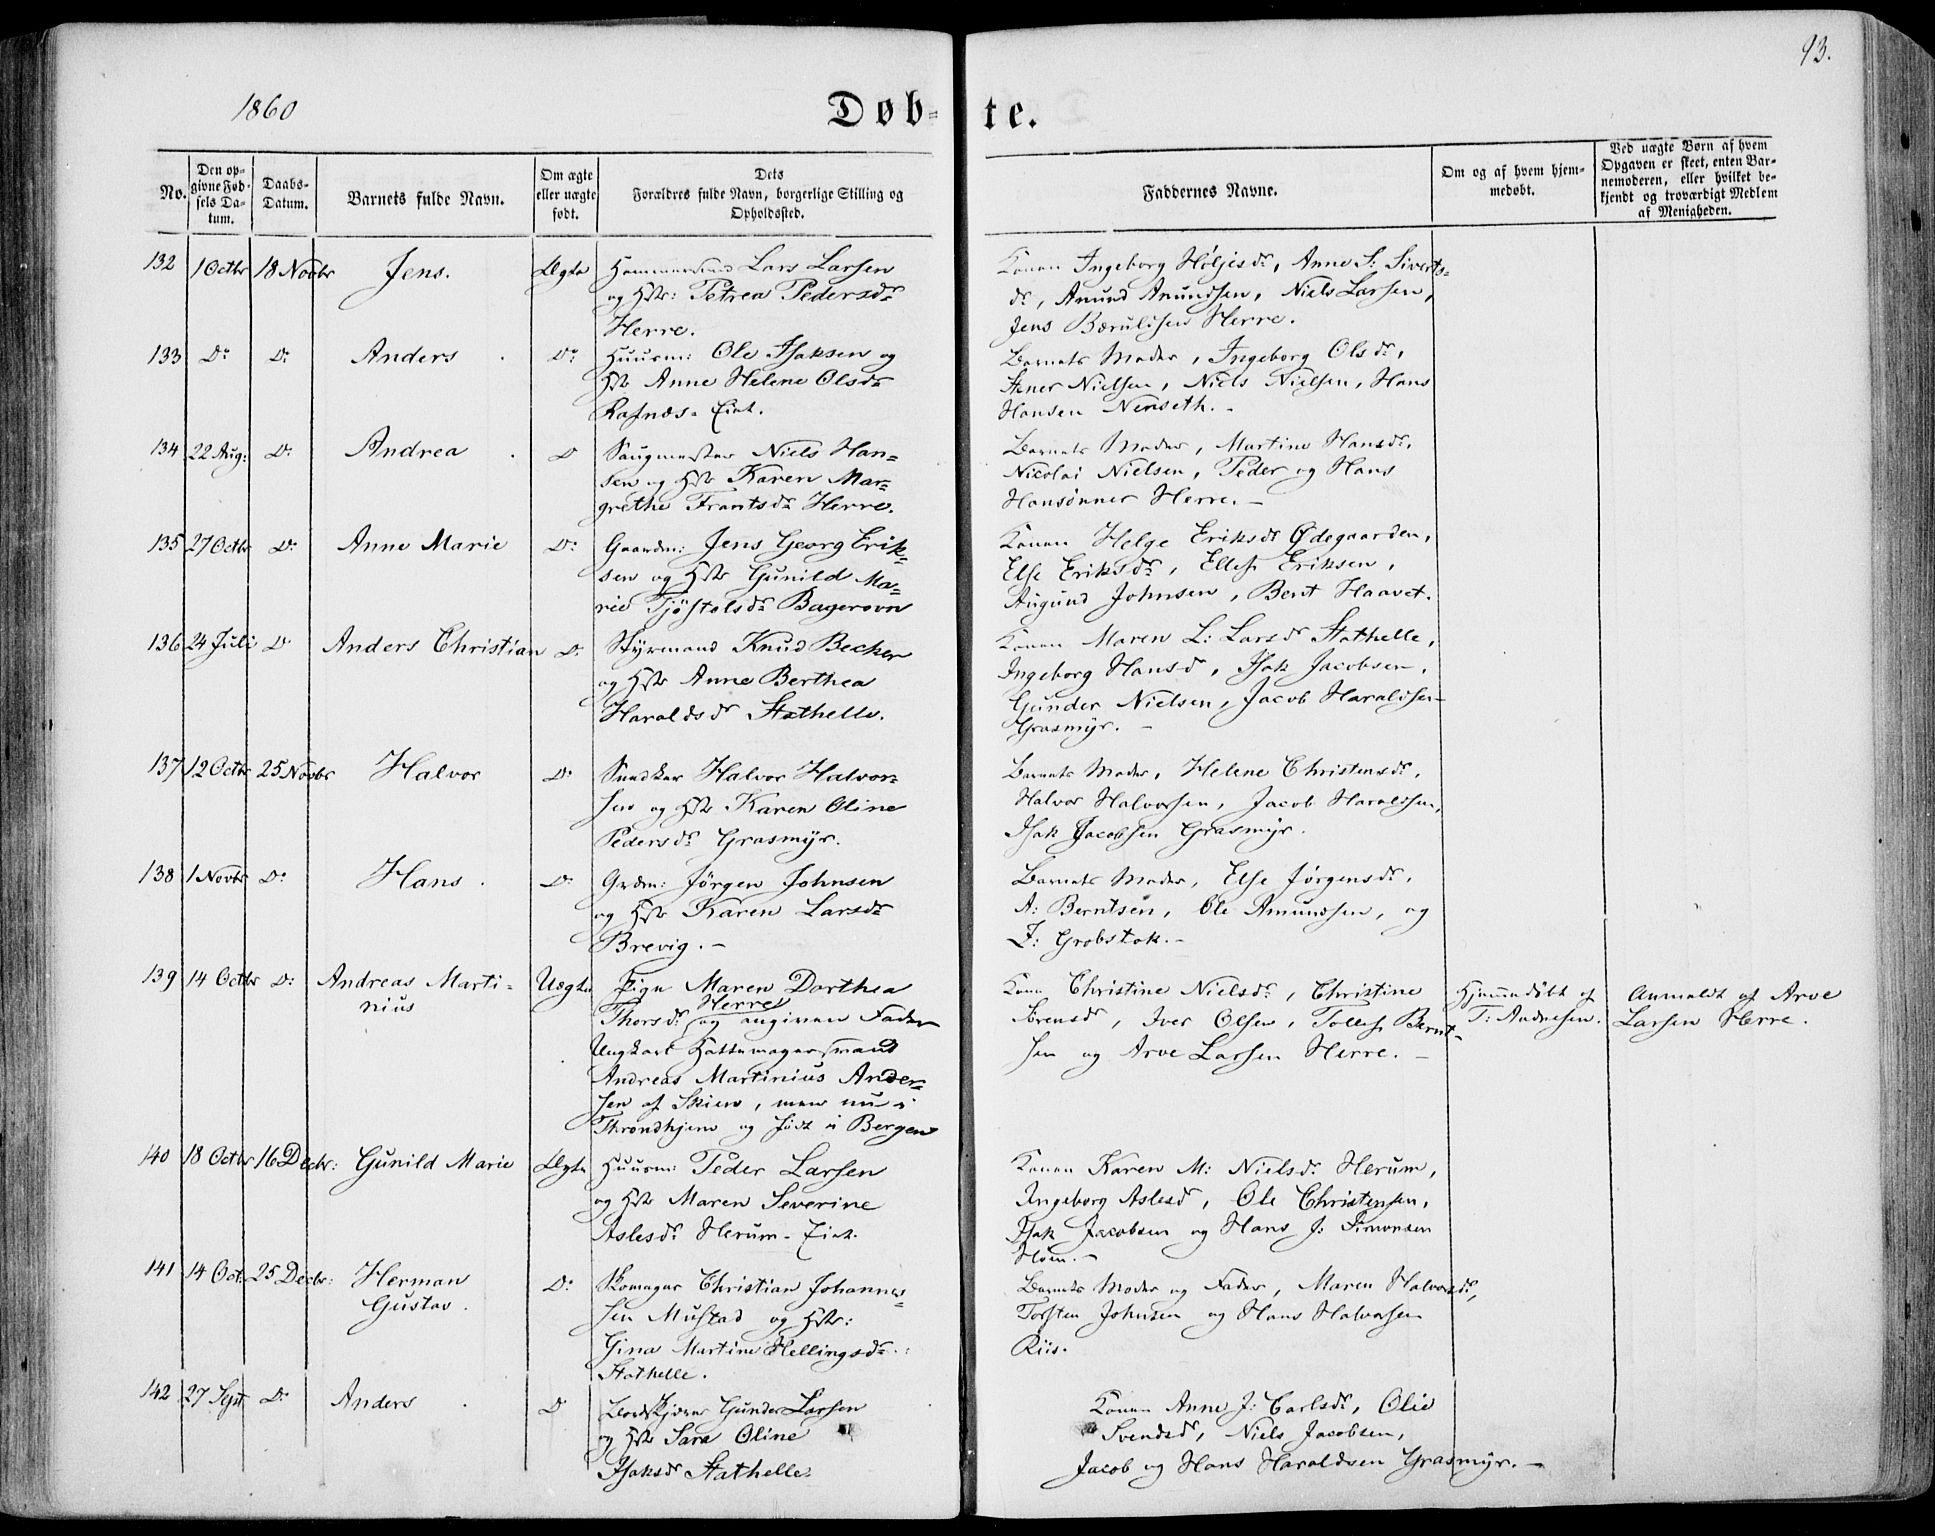 1860
93.
Døb-
te.
No.
Den op-
givne Fød-
sels Da-
tum.
Daabs-
Datum.
Barnets fulde Navn.
Om ægte
eller uægte
født.
Dets
Forældres fulde Navn, borgerlige Stilling og
Opholdssted.
Faddernes Navne.
Om og af hvem hjem-
medøbt.
Ved uægte Børn af hvem
Opgaven er skeet, enten Bar-
nemoderen, eller hvilket be-
kjendt og troværdigt Medlem
af Menigheden.
132 1 Octbr 18 Novbr Jens. Ægte Lars Larsen
og Hstr: Petrea Pedersdr
Herre.
Konen Ingeborg Høljesdr, Anne S: Siverts-
dr, Anund Anundsen, Niels Larsen,
Jens Bærulfsen Herre.
133 Do Do Anders Do Huusm: Ole Isaksen og
Hstr Anne Helene Olsdr
Rafnæs-Eiet.
Barnets Moder, Ingeborg Olsdr,
Nielsen, Niels Nielsen, Hans
Hansen Nenseth.-
134 22 Aug: Do Andrea Do Saugmester Niels Han-
sen og Hstr Karen Mar-
grethe Frantsdr Herre.
Barnets Moder, Martine Hansdr,
Nicolai Nielsen, Peder og Hans
Hansønner Herre.-
135 27 Octbr Do Anne Marie Do Gaardm: Jens Georg Erik-
sen og Hstr Gunild Ma-
rie Tjøstolsdr Bagerovn
Konen Helge Eriksdr Ødegaarden,
Else Eriksdr, Ellef Eriksen,
Augund Johnsen, Bent Haavet.
136 24 Juli Do Anders Christian Do Styrmand Knud Becker
og Hstr Anne Berthea
Haraldsdr Stathelle.
Konen Maren L: Larsdr Stathelle,
Ingeborg Hansd, Isak Jacobsen,
Gunder Nielsen, Jacob Haraldsen
Grasmyr.-
137 12 Octbr 25 Novbr Halvor Do Snedker Halvor Halvor-
sen og Hstr Karen Oline
Pedersdr Grasmyr.
Barnets Moder, Helene Christensdr,
Halvor Halvorsen, Jacob Haraldsen,
Isak Jacobsen Grasmyr.
138 1 Novbr Do Hans. Do Grdm: Jørgen Johnsen
og Hstr Karen Larsdr
Brevig.-
Barnets Moder, Else Jørgensdr,
A: Berntsen, Ole Amundsen, og
J: Grobstok.-
139 14 Octbr Do Andreas Marti-
nius
Uægte Pige Maren Dorthea
Thorsdr Herre og angiven Fader
Ungkarl Hattemagersvend
Andreas Martinius Ander-
sen af Skien, men nu i
Throndhjem og født i Bergen
Kone Christine Nielsdr, Christine
Sørensdr, Iver Olsen, Tollef Bernt-
sen og Arve Larsen Herre.-
Hjemmedøbt af
T: Andresen.
Anmeldt af Arve
Larsen Herre.
140 18 Octbr 16 Decbr: Gunild Marie Ægte Huusm: Peder Larsen
og Hstr Maren Severine
Aslesdr Herum-Eiet.
Konen Karen M: Nielsdr Herum,
Ingeborg Aslesd, Ole Christensen,
Isak Jacobsen og Hans J: Simonsen
141 14 Oct: 25 Decbr: Herman
Gustav.
Do Skomager Christian Johannes-
sen Mustad og Hstr:
Gina Martine Hellingsdr.
Stathelle.
Barnets Moder og Fader, Maren Halvorsdr,
Torsten Johnsen og Hans Halvorsen
Riis.
142 27 Sept Do Anders Do Gunder Larsen
og Hstr Sara Oline
Isaksdr Stathelle.
Konen Anne J: Carlsdr, Olie
Svendsd, Niels Jacobsen,
Jacob og Hans Haraldsen Grasmyr.-